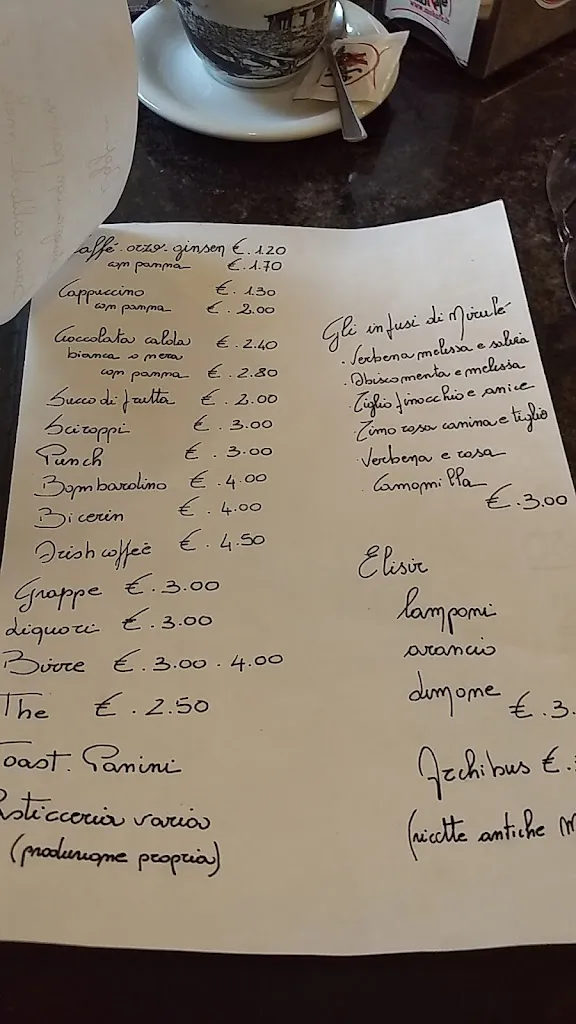 Caffé. orzo. ginsen €. 1.20
con panna €. 1.70
Cappuccino €. 1.30
con panna €. 2.00
Cioccolata calda €. 2.40
bianca o nera
con panna €. 2.80
Succo di frutta €. 2.00
Sciroppi €. 3.00
Punch €. 3.00
Bombardino €. 4.00
Bicerin €. 4.00
Irish coffeè €. 4.50
Grappe €. 3.00
Liquori €. 3.00
Birre €. 3.00 . 4.00
The €. 2.50
Toast. Panini
Pasticceria varia
(produzione propria)
Gli infusi di
. Verbena melissa e salvia
. Ibisco menta e melissa
. Tiglio finocchio e anice
. Timo rosa canina e tiglio
. Verbena e rosa
Camomilla
€. 3.00
Elisir
lamponi
arancio
limone
€. 3.
Archibus €.
(ricette antiche